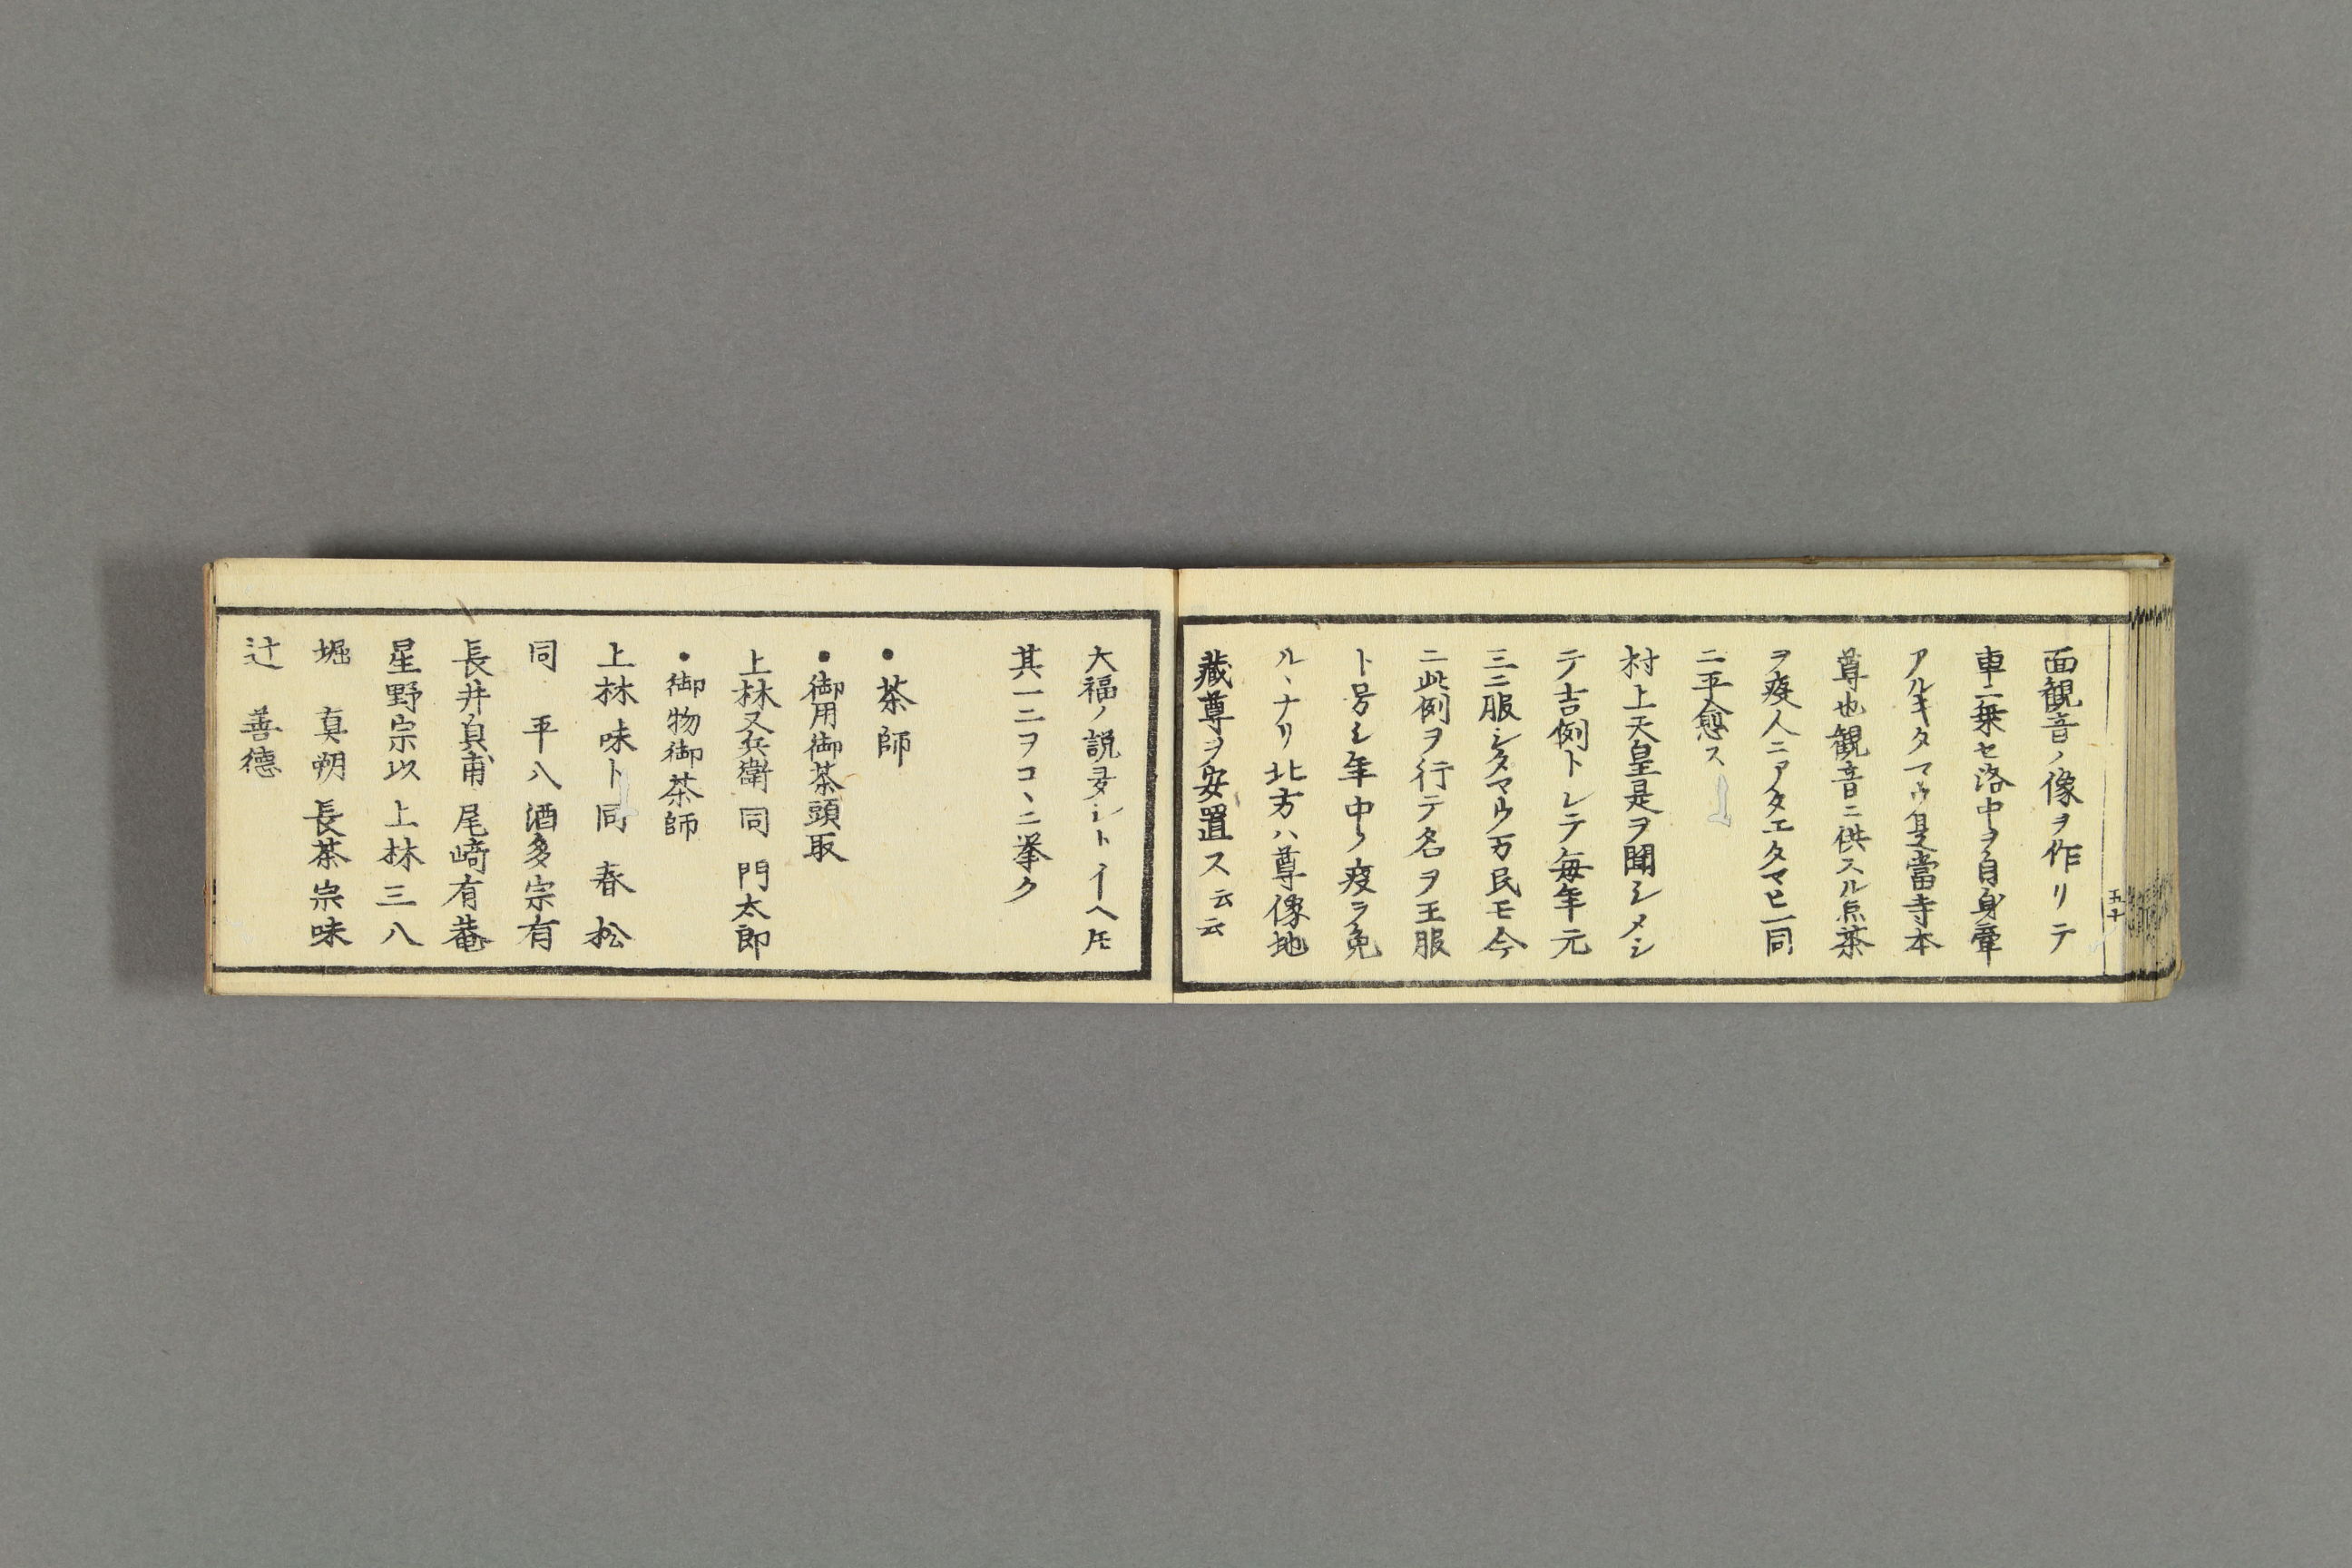 五十
面観音ノ像ヲ作リテ
車ニ乗セ洛中ヲ自身牽
アルキタマウ是當寺本
尊也観音ニ供スル点茶
ヲ疫人ニアタエタマヒ一同
ニ平愈ス
村上天皇是ヲ聞シメシ
テ吉例トシテ毎年元
三ニ服シタマウ万民モ今
ニ此例ヲ行テ名ヲ王服
ト号シ年中ノ疫ヲ免
ルヽナリ北方ハ尊像地
蔵尊ヲ安置ス云云
大福ノ説多シトイヘ𪜈
其一二ヲコヽニ挙ク
•茶師
•御用御茶頭取
上林又兵衛 同 門太郎
•御物御茶師
上林味ト 同 春松
同 平八 酒多宗有
長井貞甫 尾崎有菴
星野宗以 上林三八
堀 真朔 長茶宗味
辻 善徳